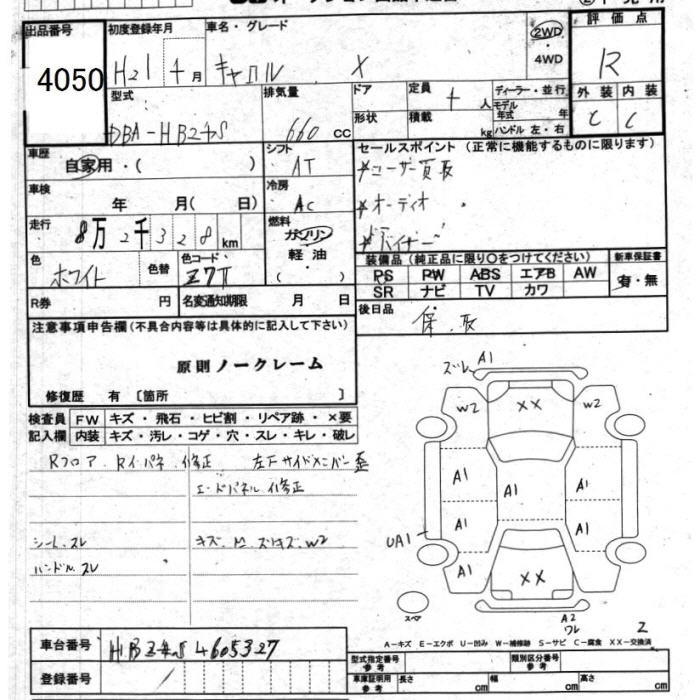 出品番号
4050
初度登録年月
H21 年 4 月
車名・グレード
キャロル X
2WD
・
4WD
評価点
R
型式
DBA-HB24S
排気量
660 cc
ドア
形状
定員
4 人
積載
kg
ディーラー・並行
モデル
年式 年
ハンドル 左・右
外装 内装
C C
車歴
自家用・( )
シフト
AT
セールスポイント (正常に機能するものに限ります)
*ユーザー買取
*オーディオ
*バイザー
車検
年 月( 日)
冷房
AC
走行
8万2千328 km
燃料
ガソリン
軽油
( )
色
ホワイト
色替
色コード
Z7T
装備品 (純正品に限り○をつけてください)
新車保証書
PS PW ABS エアB AW
SR ナビ TV カワ
有・無
R券 円
名変通知期限 月 日
後日品
保、取
注意事項申告欄(不具合内容等は具体的に記入して下さい)
原則ノークレーム
修復歴 有 [箇所 ]
検査員
記入欄
FW キズ・飛石・ヒビ割・リペア跡・×要
内装 キズ・汚レ・コゲ・穴・スレ・キレ・破レ
Rフロア、Rイ・パネ、修正 左Fサイドメンバー歪
エンドパネル修正
シート、スレ
ハンドル スレ
キズ、凹、スリキズ、W2
ズレ A1
W2 XX W2
A1 A1 A1
A1 A1
UA1
A1 XX A1
スペア
A2
ワレ
2
A-キズ E-エクボ U-凹み W-補修跡 S-サビ C-腐食 XX-交換済
車台番号
HB24S 4605327
登録番号
型式指定番号
参考
類別区分番号
参考
車庫証明用
参考
長さ cm
幅 cm
高さ cm